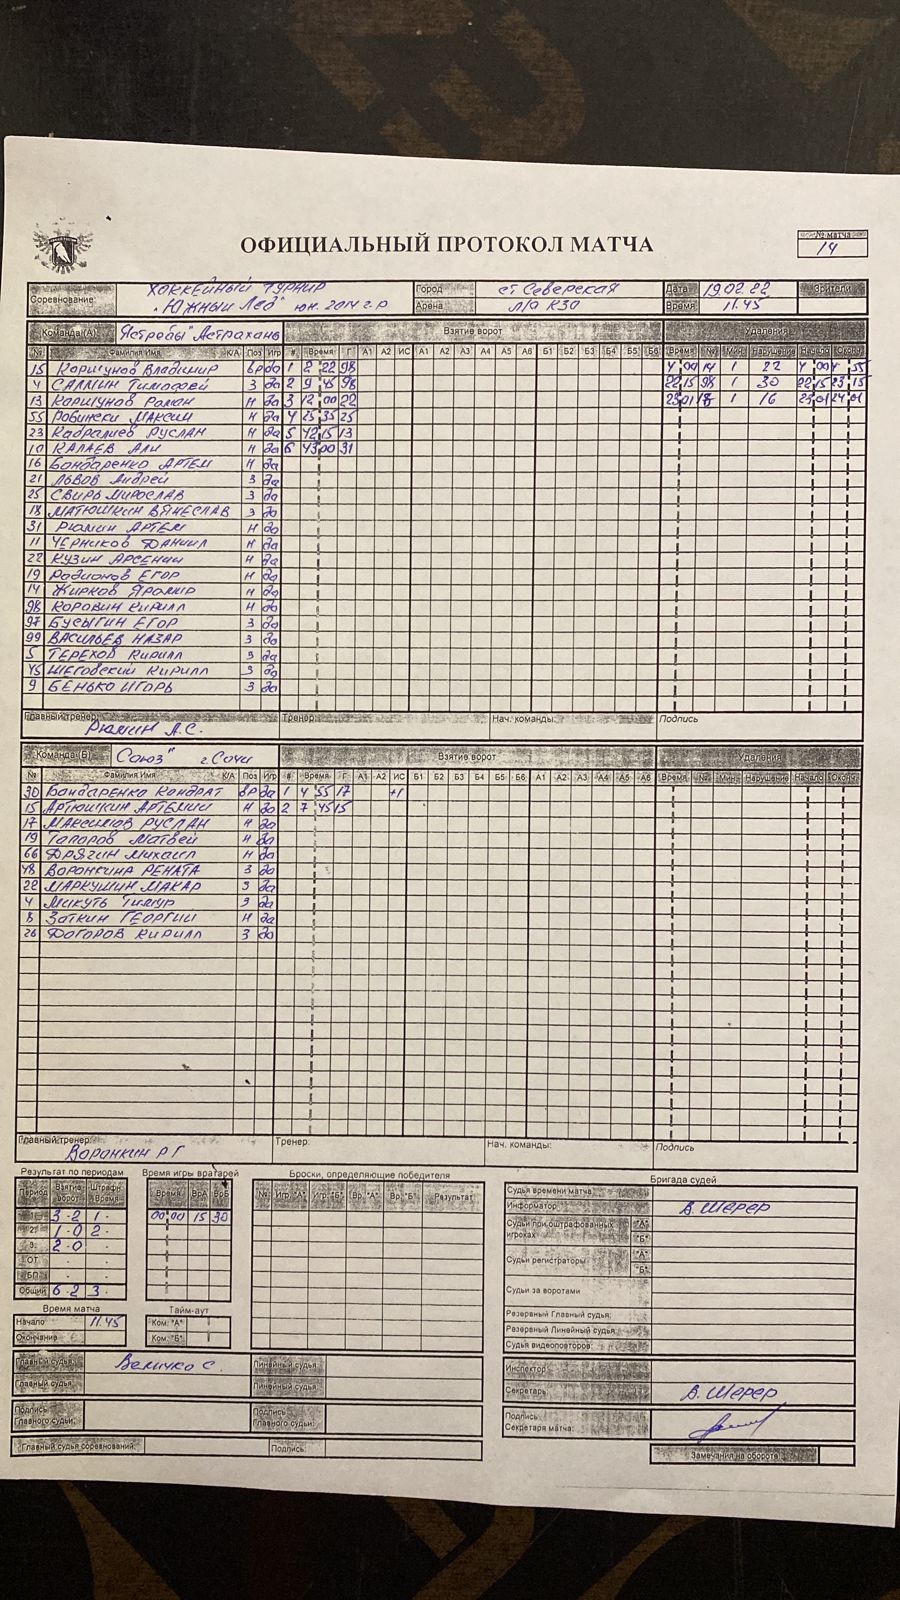 ОФИЦИАЛЬНЫЙ ПРОТОКОЛ МАТЧА
№ матча
14
Соревнование: Хоккейный турнир "Южный Лед" юн. 2014 г.р
Город ст Северская Дата 19.02.22 Зрители
Арена Л/А КЗО Время 11.45
Команда (А) Ястребы" Астрахань Взятие ворот Удаления
№ Фамилия Имя К/А Поз Игр # Время Г А1 А2 ИС А1 А2 А3 А4 А5 А6 Б1 Б2 Б3 Б4 Б5 Б6 Время № Мин Нарушение Начало Оконч.
15 Коршунов Владимир вр да 1 2 22 98 4 00 14 1 22 4 00 55
4 САЛМИН Тимофей З да 2 9 45 98 22 15 98 1 30 22 15 23 15
13 Коршунов Роман Н да 3 12 00 22 23 01 1 16 23 01 24 01
55 Робински МАКСИМ Н да 4 25 35 25
23 Кабралиев РУСЛАН Н да 5 42 15 13
10 КАЛАЕВ АЛИ Н да 6 43 00 31
16 Бондаренко АРТЕМ Н да
21 ЛЬВОВ Андрей З да
25 СВИРЬ МИРОСЛАВ З да
18 МАТЮШКИН ВЯЧЕСЛАВ З да
31 Рюмин АРТЕМ Н да
11 ЧЕРНИКОВ ДАНИИЛ Н да
22 КУЗИН АРСЕНИЙ Н да
19 Родионов ЕГОР Н да
14 Жирков Яромир Н да
98 КОРОВИН КИРИЛЛ Н да
97 БУСЫГИН ЕГОР З да
99 ВАСИЛЬЕВ НАЗАР З да
5 ТЕРЕХОВ КИРИЛЛ З да
45 ШЕГОВСКИЙ КИРИЛЛ З да
9 БЕНЬКО ИГОРЬ З да
Главный тренер: Рюмин А.С. Тренер: Нач. команды: Подпись
Команда (Б) Союз" г.Сочи Взятие ворот Удаления
№ Фамилия Имя К/А Поз Игр # Время Г А1 А2 ИС Б1 Б2 Б3 Б4 Б5 Б6 А1 А2 А3 А4 А5 А6 Время № Мин. Нарушение Начало Оконч.
30 Бондаренко КОНДРАТ вр да 1 4 55 17 +1
15 АРТЮШКИН АРТЕМИЙ Н да 2 7 45 15
17 МАКСИМОВ РУСЛАН Н да
19 Тапоров Матвей Н да
66 ДРЯГИН Михаил Н да
48 ВОРОНКИНА РЕНАТА З да
22 МАРКУШИН МАКАР З да
4 Микуть Тимур З да
8 Заткин ГЕОРГИЙ Н да
26 ДОГОРОВ КИРИЛЛ З да
Главный тренер: Воронкин Р Г Тренер: Нач. команды: Подпись
Результат по периодам Время игры вратарей Броски, определяющие победителя Бригада судей
Период Взятие ворот Штрафн. время Время ВрА ВрБ № Игр."А" Игр."Б" Вр."А" Вр."Б" Результат
1 3 2 1 00 00 15 30
2 1 0 2
3 2 0
ОТ
БП
Общий 6 2 3
Судьи времени матча
Информатор В. Шерер
Судьи при оштрафованных игроках "А" "Б"
Судьи регистраторы "А" "Б"
Судьи за воротами
Резервный Главный судья:
Резервный Линейный судья:
Судья видеоповторов:
Время матча Тайм-аут
Начало 11.45 Ком. "А"
Окончание Ком. "Б"
Главный судья Величко С. Линейный судья
Главный судья Линейный судья
Инспектор
Секретарь В. Шерер
Подпись Главного судьи: Подпись Главного судьи:
Подпись Секретаря матча:
Главный судья соревнований: Подпись:
Замечания на обороте